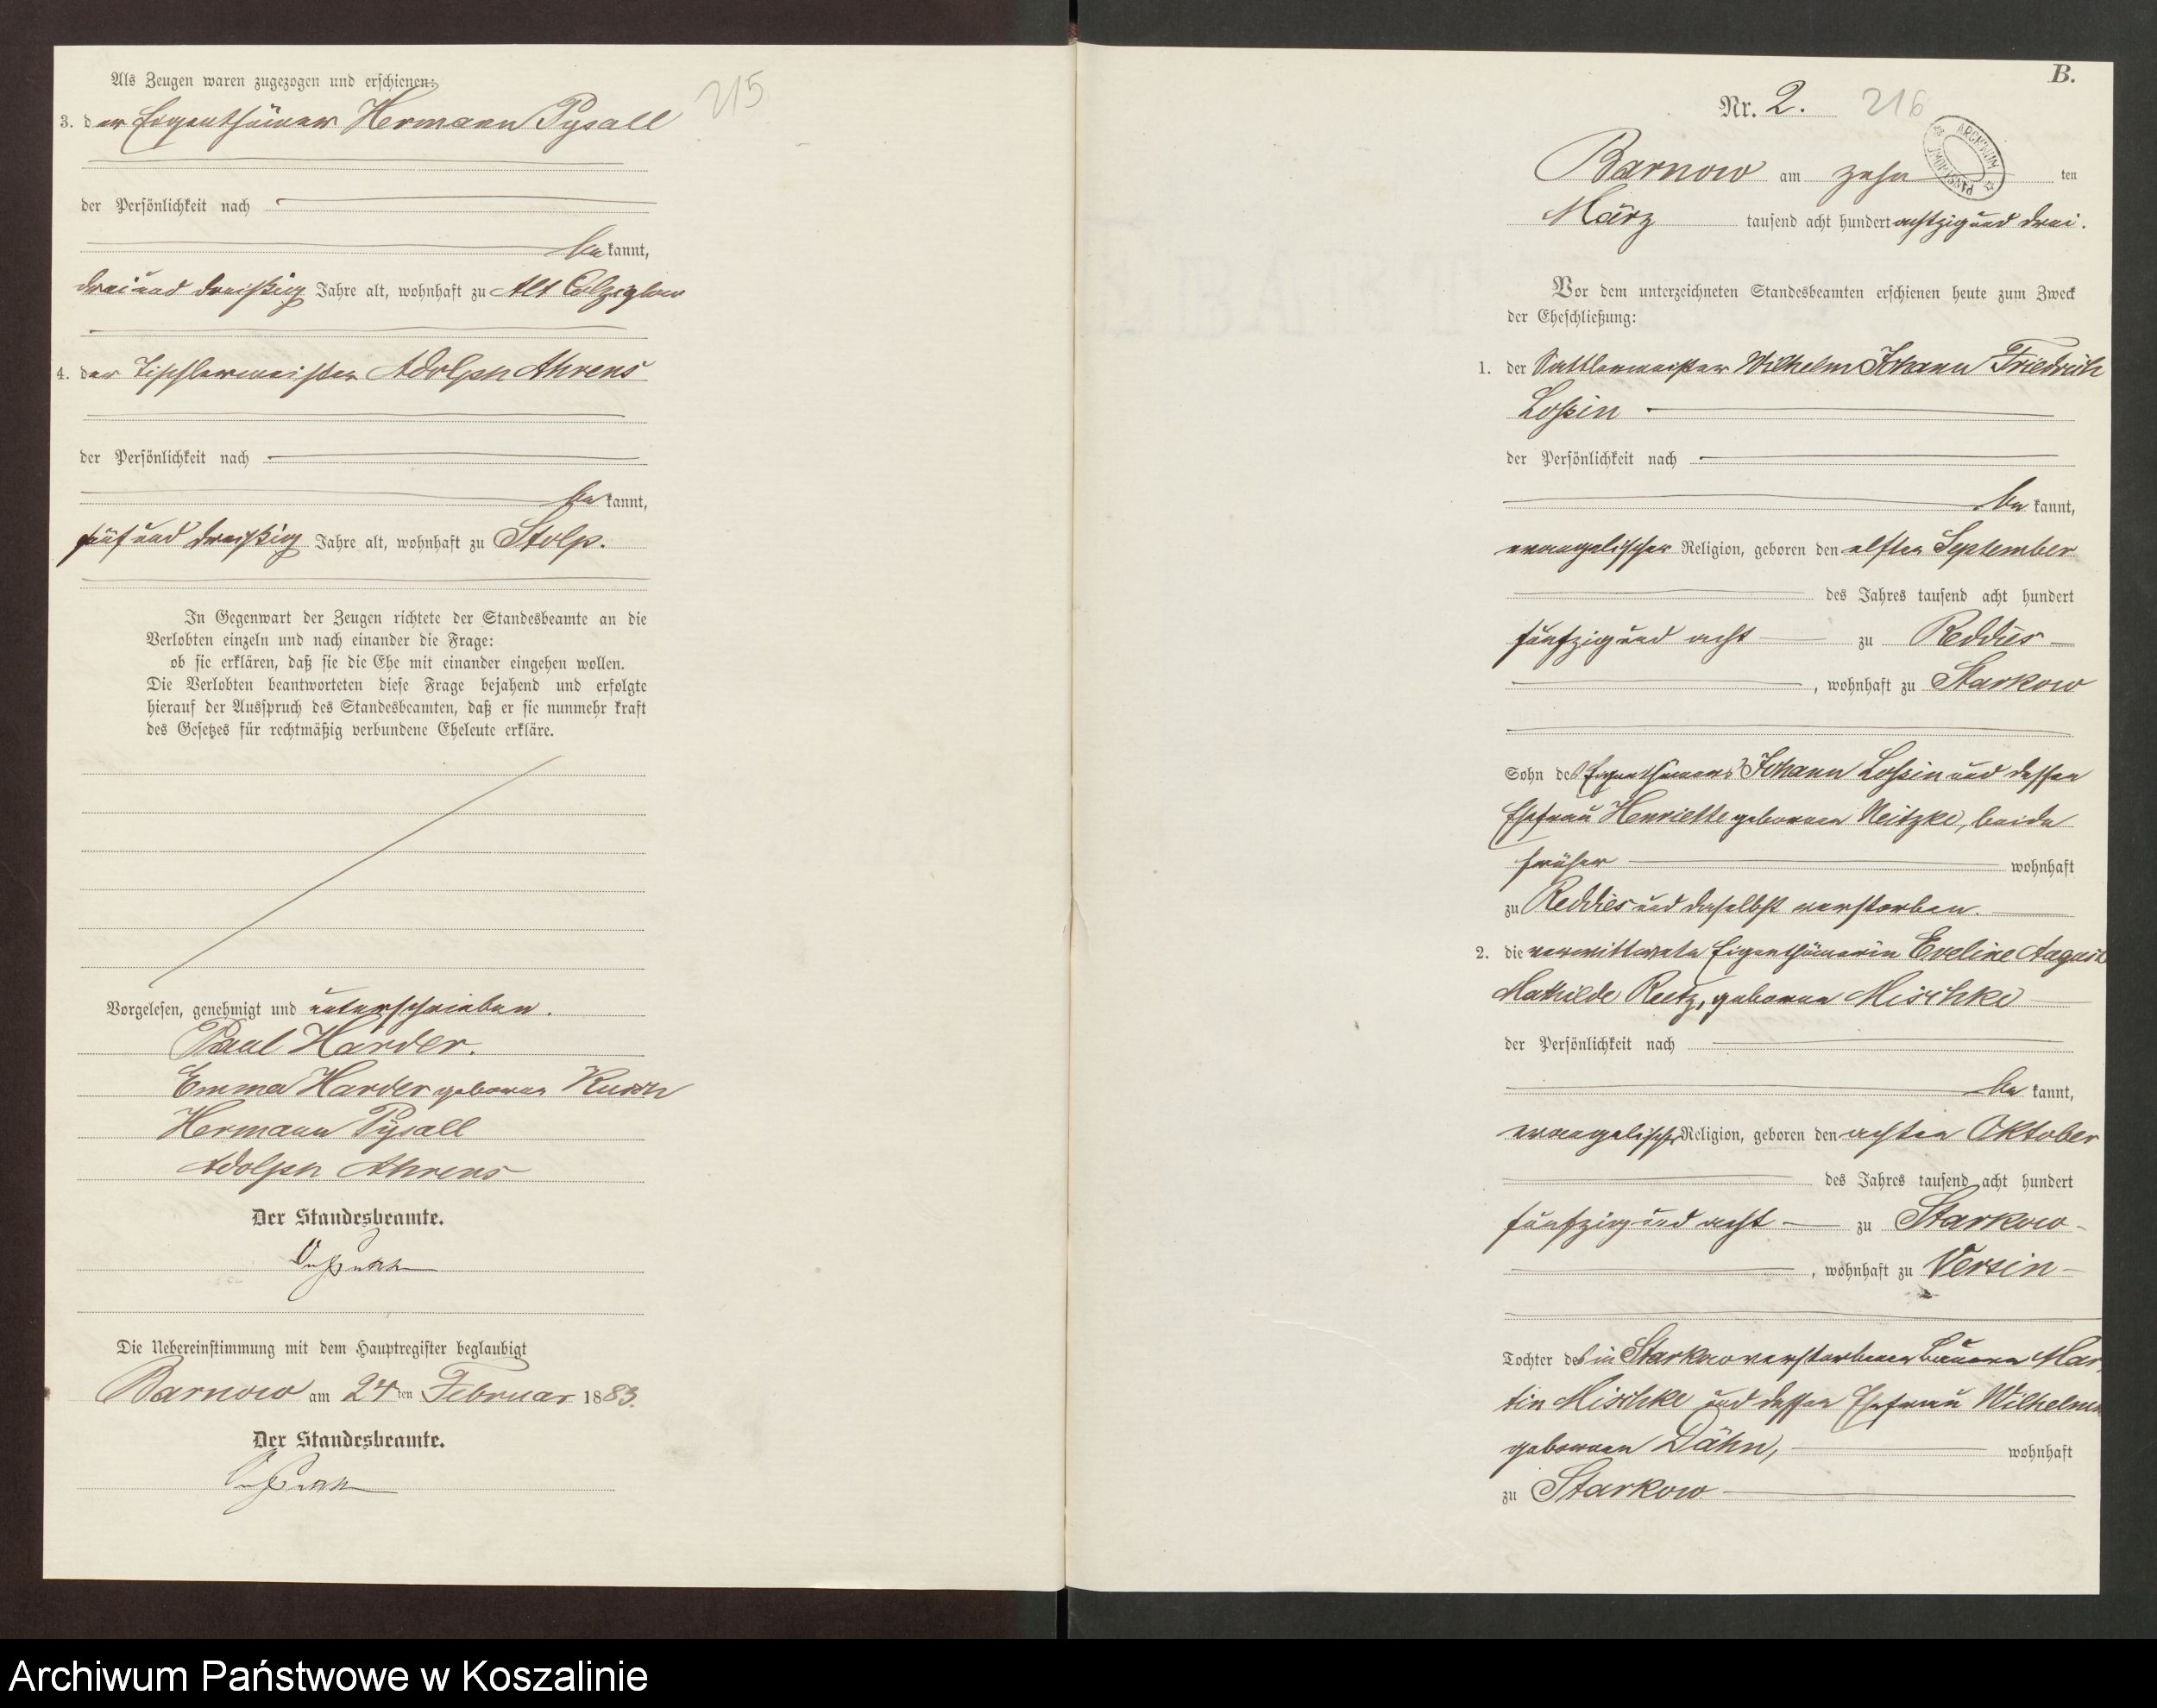 Als Zeugen waren zugezogen und erschienen:
215
3. der Eigenthümer Hermann Pysall
der Persönlichkeit nach
be kannt,
drei und dreißig Jahre alt, wohnhaft zu Alt Colziglow
4. der Tischlermeister Adolph Ahrens
der Persönlichkeit nach
be kannt,
fünf und dreißig Jahre alt, wohnhaft zu Stolp.
In Gegenwart der Zeugen richtete der Standesbeamte an die
Verlobten einzeln und nach einander die Frage:
ob sie erklären, daß sie die Ehe mit einander eingehen wollen.
Die Verlobten beantworteten diese Frage bejahend und erfolgte
hierauf der Ausspruch des Standesbeamten, daß er sie nunmehr kraft
des Gesetzes für rechtmäßig verbundene Eheleute erkläre.
Vorgelesen, genehmigt und unterschrieben.
Paul Harder.
Emma Harder geborne
Hermann Pysall
Adolph Ahrens
Der Standesbeamte.
Die Uebereinstimmung mit dem Hauptregister beglaubigt
Barnow am 24ten Februar 1883.
Der Standesbeamte.
B.
Nr. 2. 216
ARCHIWUM PAŃSTWOWE
Barnow am zehn ten
März tausend acht hundert achtzig und drei.
Vor dem unterzeichneten Standesbeamten erschienen heute zum Zweck
der Eheschließung:
1. der Sattlermeister Wilhelm Johann Friedrich
Loßin
der Persönlichkeit nach
be kannt,
evangelischer Religion, geboren den elften September
des Jahres tausend acht hundert
fünfzig und acht zu Reddies
, wohnhaft zu Starkow
Sohn des Eigenthümers Johann Loßin und dessen
Ehefrau Henriette gebornen Neitzke, beide
früher wohnhaft
zu Reddies und daselbst verstorben.
2. die verwittwete Eigenthümerin Eveline August
Mathilde Reetz, geborne Mischke
der Persönlichkeit nach
be kannt,
evangelischer Religion, geboren den achten Oktober
des Jahres tausend acht hundert
fünfzig und acht zu Starkow
, wohnhaft zu Versin
Tochter des in Starkow verstorbenen Bauern Mar
tin Mischke und dessen Ehefrau Wilhelmine
gebornen Dähn, wohnhaft
zu Starkow
Archiwum Państwowe w Koszalinie